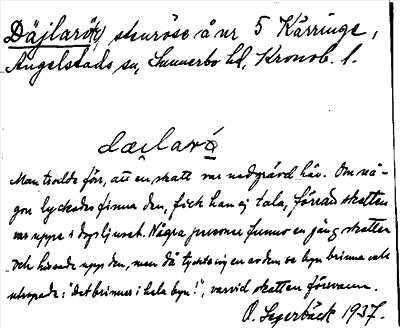 Däjlarö(r), stenröse å nr 5 Käringe,
Angelstads sn, Sunnerbo hd, Kronob. l.
dæi̯larö
Man trodde förr, att en skatt var nedgrävd här. Om nå-
gon lyckades finna den, fick han ej tala, förrän skatten
var uppe i dagsljuset. Några personer funno en gång skatten
och hissade upp den, men då tyckte sig en av dem se byn brinna och
utropade: "det brinner i hela byn!", varvid skatten försvann.
O. Segerbäck 1937.